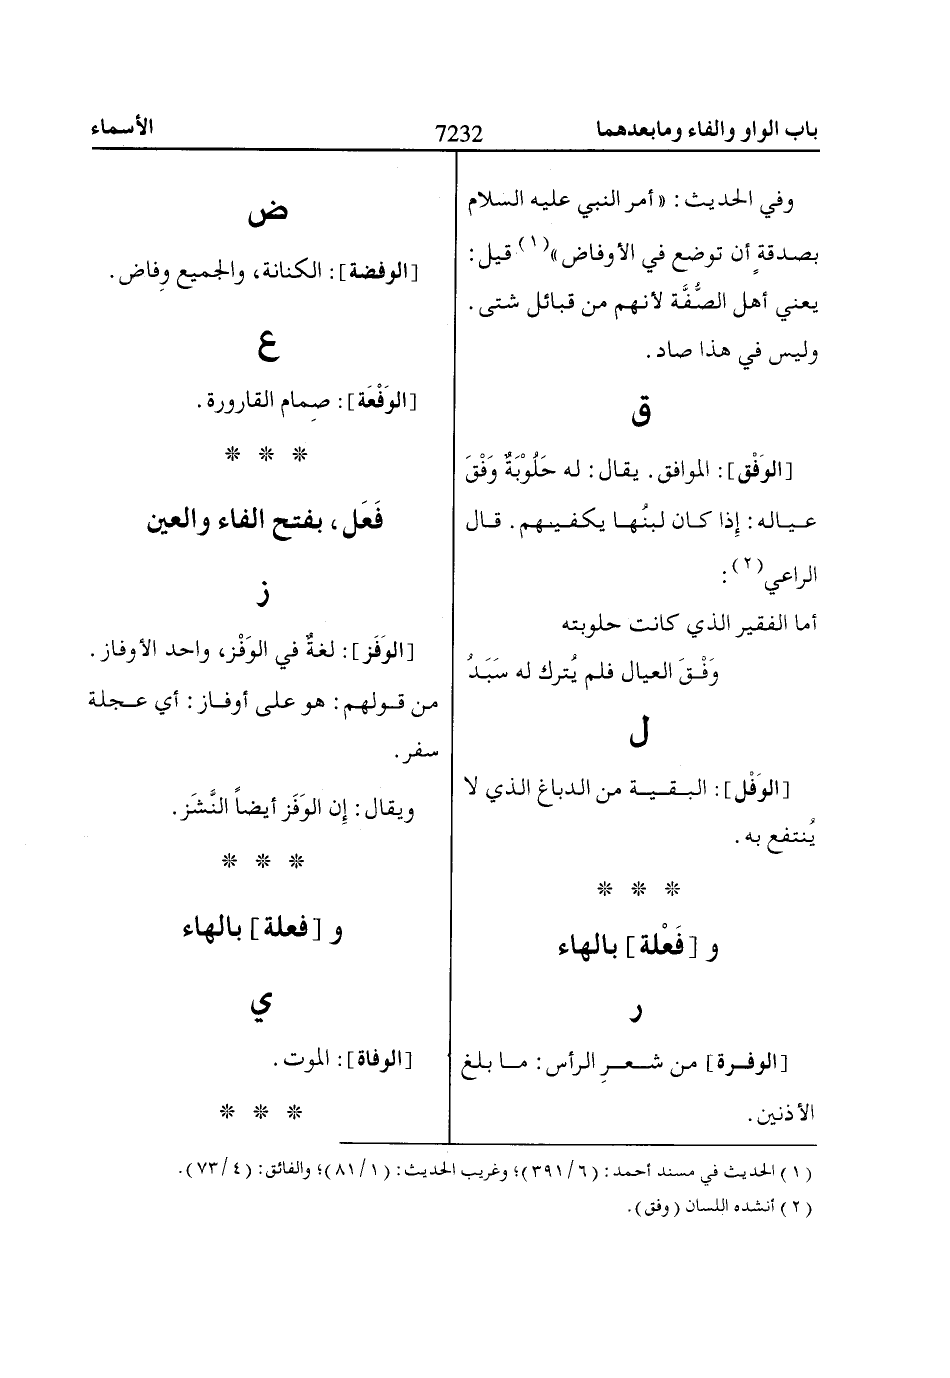 باب الواو والفاء ومابعدهما 7232 الأسماء
وفي الحديث: «أمر النبي عليه السلام
بصدقةٍ أن توضع في الأوفاض»(١) قيل:
يعني أهل الصُّفَّة لأنهم من قبائل شتى.
وليس في هذا صاد.
ق
[الوَفْق]: الموافق. يقال: له حَلُوْبَةٌ وَفْقَ
عياله: إِذا كان لبنُها يكفيهم. قال
الراعي(٢):
أما الفقير الذي كانت حلوبته
وَفْقَ العيال فلم يُترك له سَبَدُ
ل
[الوَفْل]: البقية من الدباغ الذي لا
يُنتفع به.
* * *
و [فَعْلة] بالهاء
ر
[الوفرة] من شعرِ الرأس: ما بلغ
الأذنين.
ض
[الوفضة]: الكنانة، والجميع وِفاض.
ع
[الوَفْعَة]: صِمام القارورة.
* * *
فَعَل، بفتح الفاء والعين
ز
[الوَفَز]: لغةٌ في الوَفْز، واحد الأوفاز.
من قولهم: هو على أوفاز: أي عجلة
سفر.
ويقال: إِن الوَفَز أيضاً النَّشَز.
* * *
و [فعلة] بالهاء
ي
[الوفاة]: الموت.
* * *
(١) الحديث في مسند أحمد: (٦/ ٣٩١)؛ وغريب الحديث: (١/ ٨١)؛ والفائق: (٤/ ٧٣).
(٢) أنشده اللسان (وفق).